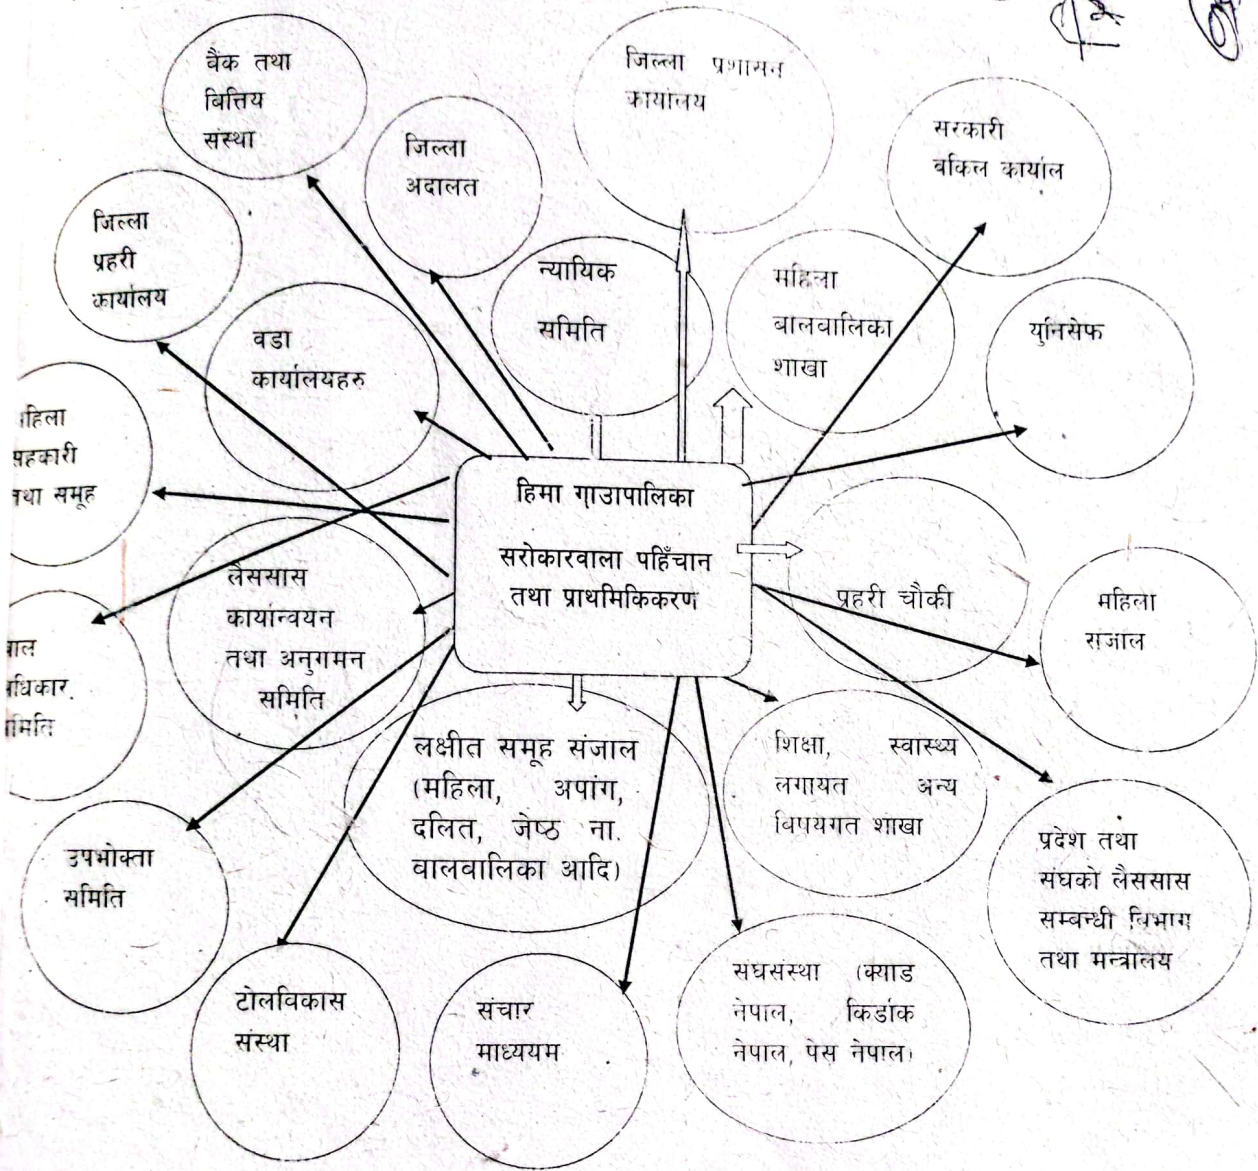 बैंक तथा
बित्तिय
संस्था
जिल्ला
अदालत
जिल्ला प्रशासन
कार्यालय
सरकारी
वकिल कार्याल
जिल्ला
प्रहरी
कार्यालय
वडा
कार्यालयहरु
न्यायिक
समिति
महिला
बालबालिका
शाखा
युनिसेफ
हिला
सहकारी
तथा समूह
हिमा गाउापालिका
सरोकारवाला पहिँचान
तथा प्राथमिकिकरण
लैससास
कार्यान्वयन
तथा अनुगमन
समिति
प्रहरी चौकी
महिला
संजाल
बाल
धिकार
मिति
लक्षीत समूह संजाल
(महिला, अपांग,
दलित, जेष्ठ ना.
वालवालिका आदि)
शिक्षा, स्वास्थ्य
लगायत अन्य
विषयगत शाखा
प्रदेश तथा
संघको लैससास
सम्बन्धी विभाग
तथा मन्त्रालय
उपभोक्ता
समिति
टोलविकास
संस्था
संचार
माध्ययम
संघसंस्था (क्याड
नेपाल, किर्डाक
नेपाल, पेस नेपाल)